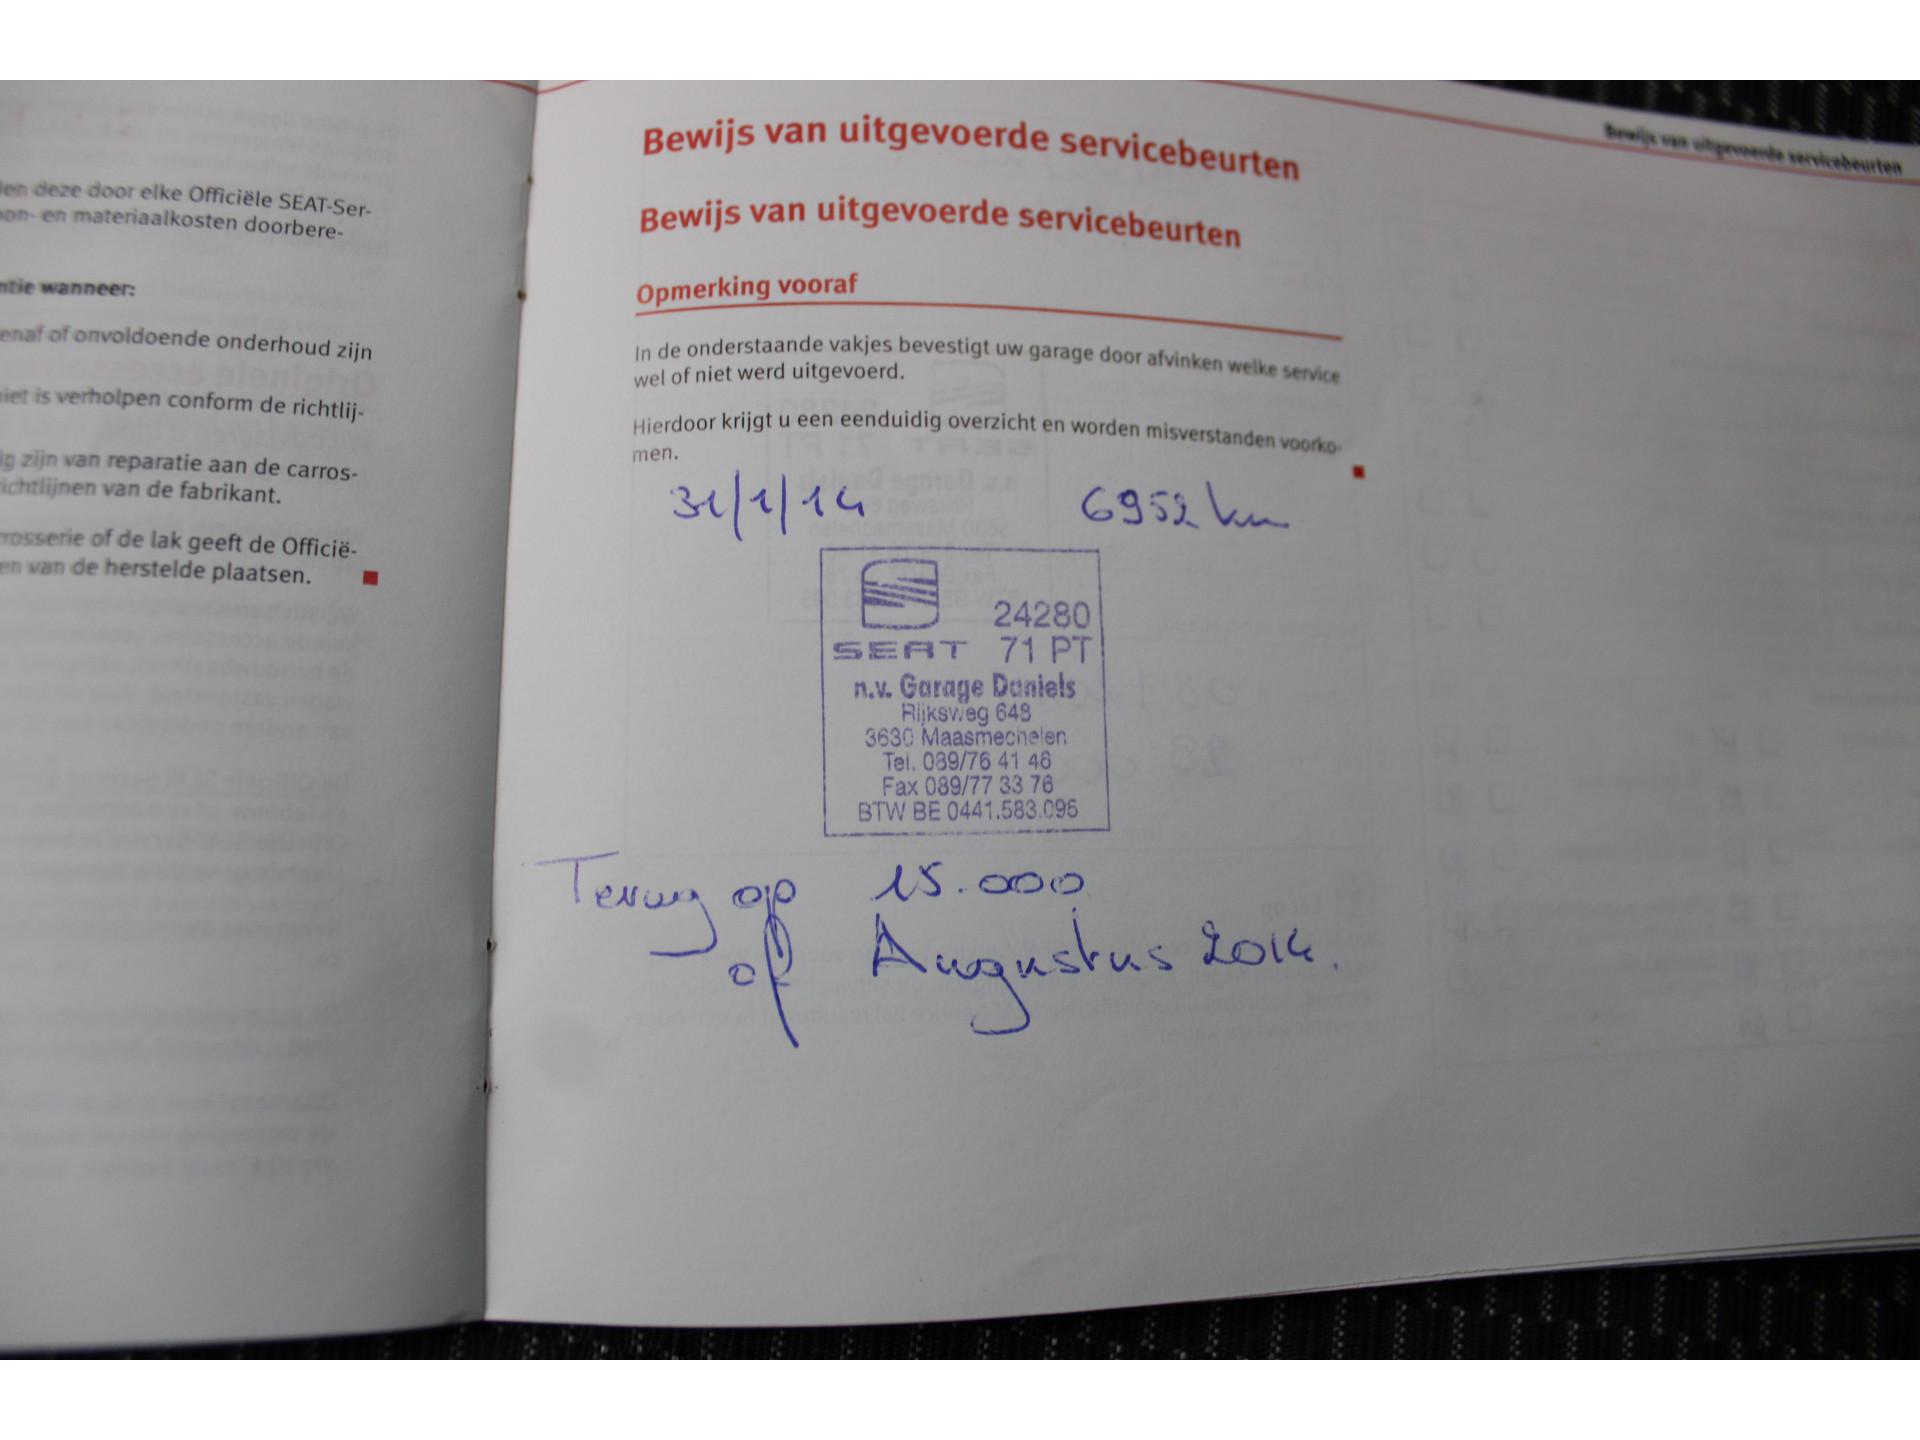 len deze door elke Officiële SEAT-Ser-
oon- en materiaalkosten doorbere-
ntie wanneer:
enaf of onvoldoende onderhoud zijn
niet is verholpen conform de richtlij-
ig zijn van reparatie aan de carros-
ichtlijnen van de fabrikant.
rosserie of de lak geeft de Officië-
en van de herstelde plaatsen.
Bewijs van uitgevoerde servicebeurten
Bewijs van uitgevoerde servicebeurten
Bewijs van uitgevoerde servicebeurten
Opmerking vooraf
In de onderstaande vakjes bevestigt uw garage door afvinken welke service
wel of niet werd uitgevoerd.
Hierdoor krijgt u een eenduidig overzicht en worden misverstanden voorko-
men.
31/1/14 6952 km
24280
SEAT 71 PT
n.v. Garage Daniels
Rijksweg 648
3630 Maasmechelen
Tel. 089/76 41 46
Fax 089/77 33 76
BTW BE 0441.583.095
Terug op 15.000
of Augustus 2014.